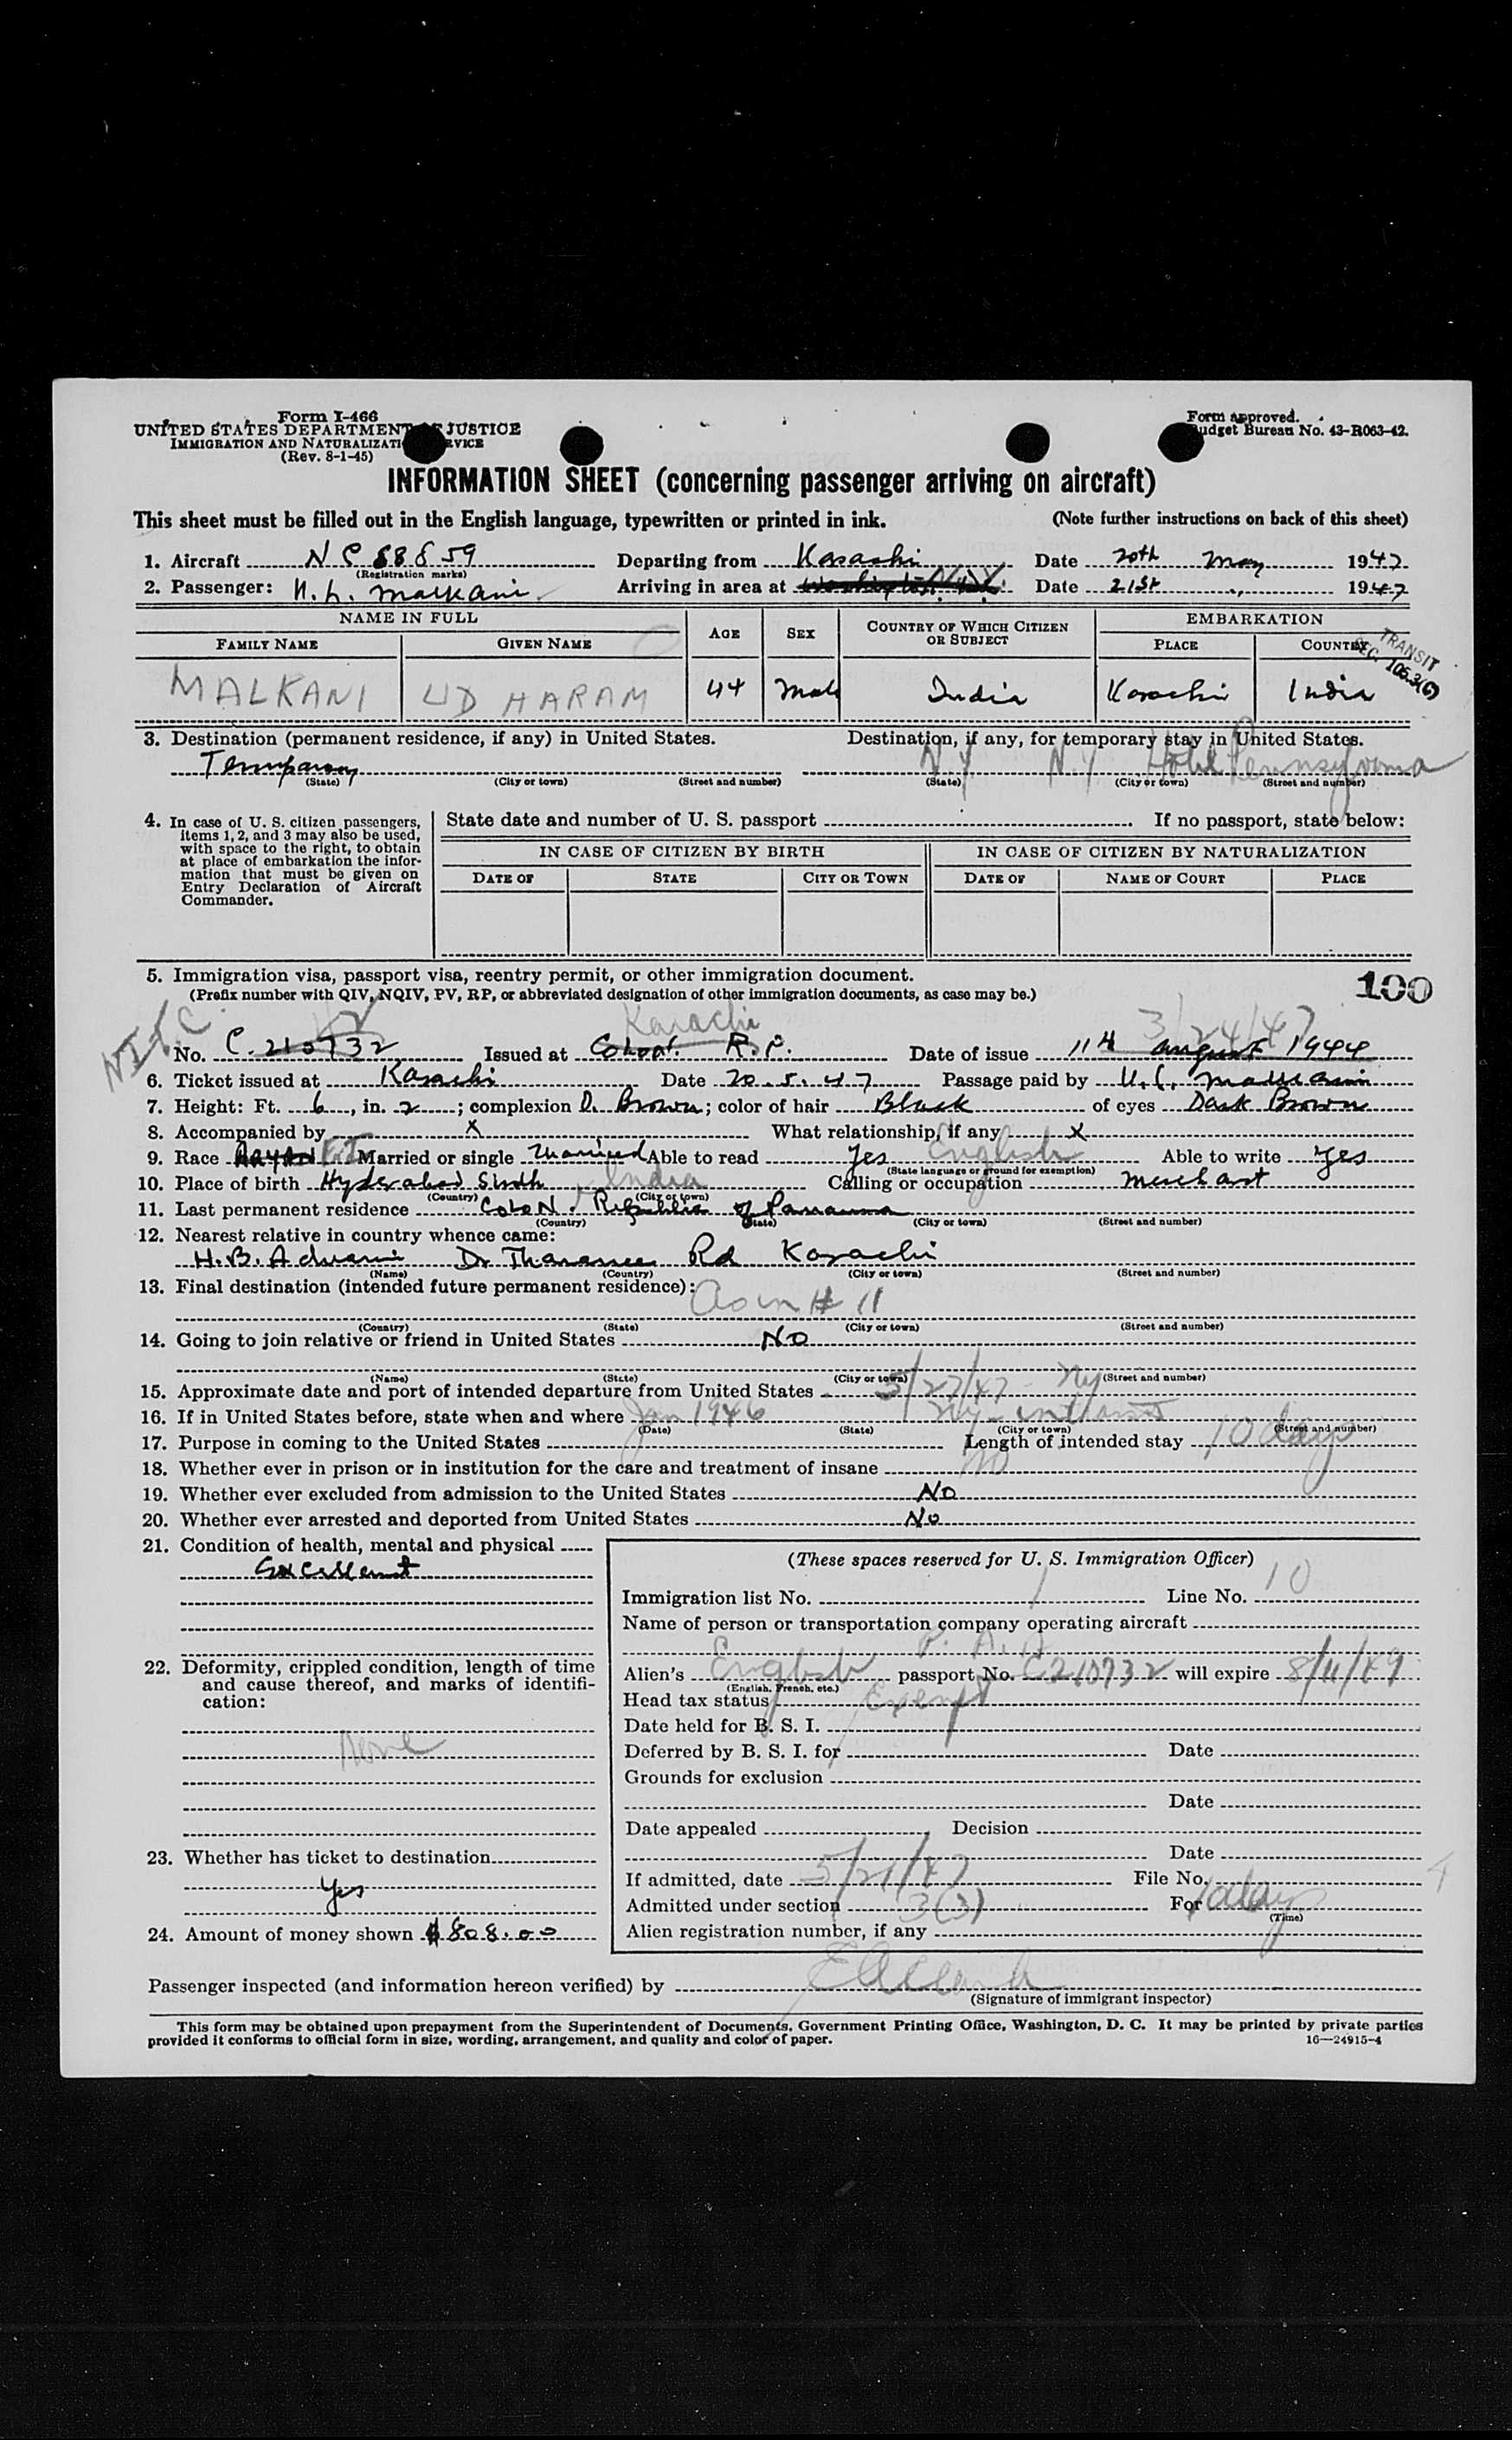 Form I-466
UNITED STATES DEPARTMENT OF JUSTICE
IMMIGRATION AND NATURALIZATION SERVICE
(Rev. 8-1-45)
Form approved.
Budget Bureau No. 43-R063-42.
INFORMATION SHEET (concerning passenger arriving on aircraft)
This sheet must be filled out in the English language, typewritten or printed in ink. (Note further instructions on back of this sheet)
1. Aircraft NC 88859 Departing from Karachi Date 20th May 1947
(Registration marks)
2. Passenger: U. L. Malkani Arriving in area at N.Y. Date 21st 1947
NAME IN FULL AGE SEX COUNTRY OF WHICH CITIZEN OR SUBJECT EMBARKATION
FAMILY NAME GIVEN NAME PLACE COUNTRY
TRANSIT
SEC. 106.3(6)
MALKANI UDHARAM 44 Male India Karachi India
3. Destination (permanent residence, if any) in United States. Destination, if any, for temporary stay in United States.
Temporary N.Y. N.Y. Hotel Pennsylvania
(State) (City or town) (Street and number) (State) (City or town) (Street and number)
4. In case of U. S. citizen passengers, items 1, 2, and 3 may also be used, with space to the right, to obtain at place of embarkation the information that must be given on Entry Declaration of Aircraft Commander.
State date and number of U. S. passport If no passport, state below:
IN CASE OF CITIZEN BY BIRTH IN CASE OF CITIZEN BY NATURALIZATION
DATE OF STATE CITY OR TOWN DATE OF NAME OF COURT PLACE
5. Immigration visa, passport visa, reentry permit, or other immigration document.
(Prefix number with QIV, NQIV, PV, RP, or abbreviated designation of other immigration documents, as case may be.)
100
Karachi 3/24/47
No. C. 210732 Issued at Colon R.P. Date of issue 11th August 1944
6. Ticket issued at Karachi Date 20.5.47 Passage paid by U. L. Malkani
7. Height: Ft. 6, in. 2; complexion D. Brown; color of hair Black of eyes Dark Brown
8. Accompanied by x What relationship, if any x
9. Race E.I. Married or single Married Able to read Yes English Able to write Yes
(State language or ground for exemption)
10. Place of birth Hyderabad Sindh India Calling or occupation Merchant
(Country) (City or town)
11. Last permanent residence Colon. Republic of Panama
(Country) (State) (City or town) (Street and number)
12. Nearest relative in country whence came:
H. B. Advani Dr Rd Karachi
(Name) (Country) (City or town) (Street and number)
13. Final destination (intended future permanent residence): as in # 11
(Country) (State) (City or town) (Street and number)
14. Going to join relative or friend in United States No
(Name) (State) (City or town) (Street and number)
15. Approximate date and port of intended departure from United States 5/27/47 - NY
16. If in United States before, state when and where Jan 1946 NY - in transit
(Date) (State) (City or town) (Street and number)
17. Purpose in coming to the United States Length of intended stay 10 days
18. Whether ever in prison or in institution for the care and treatment of insane no
19. Whether ever excluded from admission to the United States No
20. Whether ever arrested and deported from United States No
21. Condition of health, mental and physical
Excellent
22. Deformity, crippled condition, length of time and cause thereof, and marks of identification:
None
23. Whether has ticket to destination
Yes
24. Amount of money shown $808.00
(These spaces reserved for U. S. Immigration Officer)
Immigration list No. 1 Line No. 10
Name of person or transportation company operating aircraft
P. A. A
Alien's English passport No. C210732 will expire 8/11/49
(English, French, etc.)
Head tax status Exempt
Date held for B. S. I.
Deferred by B. S. I. for Date
Grounds for exclusion
Date
Date appealed Decision
Date
If admitted, date 5/21/47 File No.
Admitted under section 3(3) For 10 days
(Time)
Alien registration number, if any
Passenger inspected (and information hereon verified) by
(Signature of immigrant inspector)
This form may be obtained upon prepayment from the Superintendent of Documents, Government Printing Office, Washington, D. C. It may be printed by private parties
provided it conforms to official form in size, wording, arrangement, and quality and color of paper. 16—24915-4